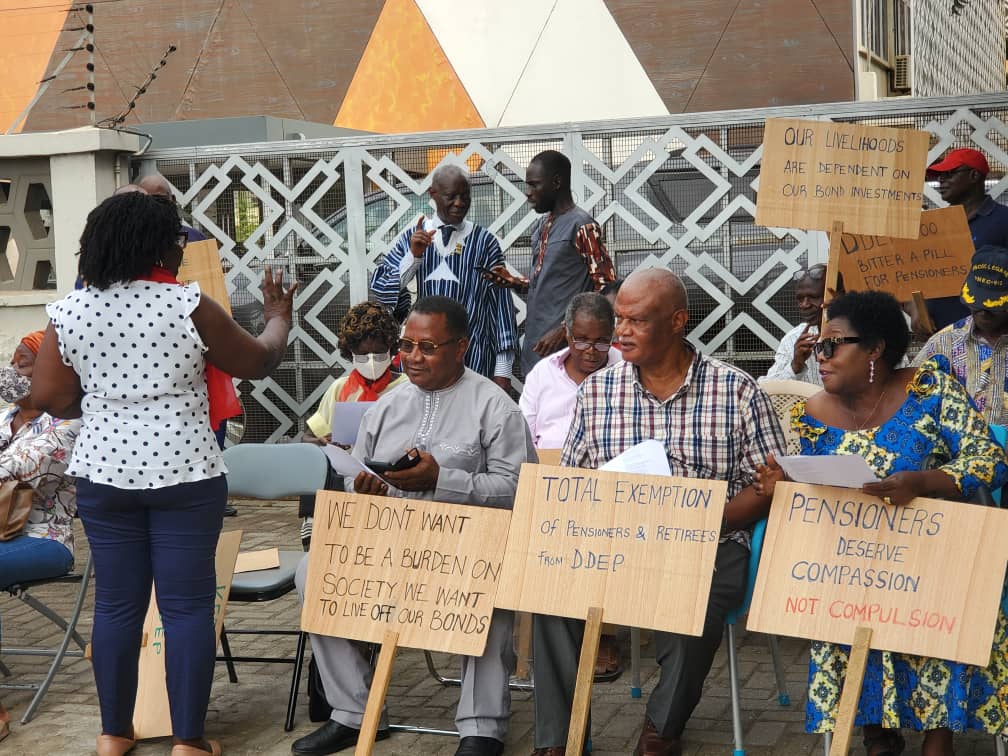 OUR LIVELIHOODS
ARE DEPENDENT ON
OUR BOND INVESTMENTS
BITTER A PILL
FOR PENSIONERS
WE DON'T WANT
TO BE A BURDEN ON
SOCIETY. WE WANT
TO LIVE OFF OUR BONDS
TOTAL EXEMPTION
OF PENSIONERS & RETIREE'S
FROM DDEP
PENSIONERS
DESERVE
COMPASSION
NOT COMPULSION